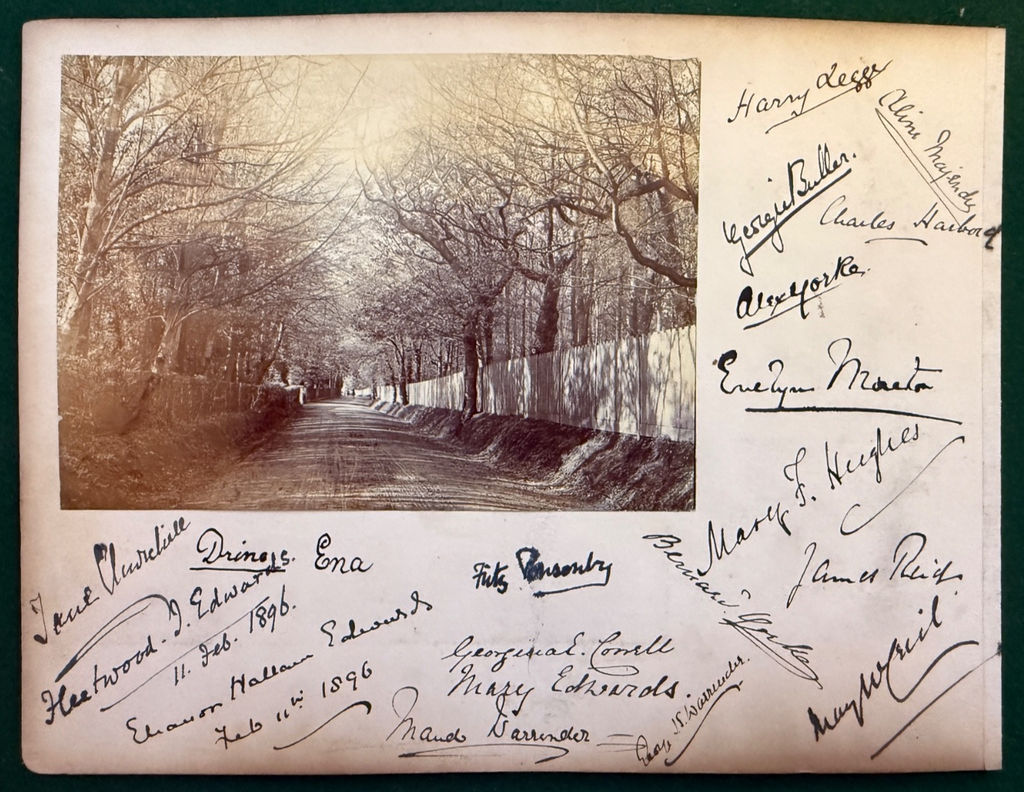 Harry Legge
Aline Majendie
Georgie Buller.
Charles Harbord
Alex Yorke.
Evelyn Moreton
Mary F. Hughes
James Reid
Bernard
Jane Churchill
Drino
Ena
Fritz Ponsonby
Fleetwood. I. Edwards
11. Feb. 1896.
Eleanor Hallam Edwards
Feb 11th 1896
Georgina E.
Mary Edwards.
Maud Warrender
Warrender.